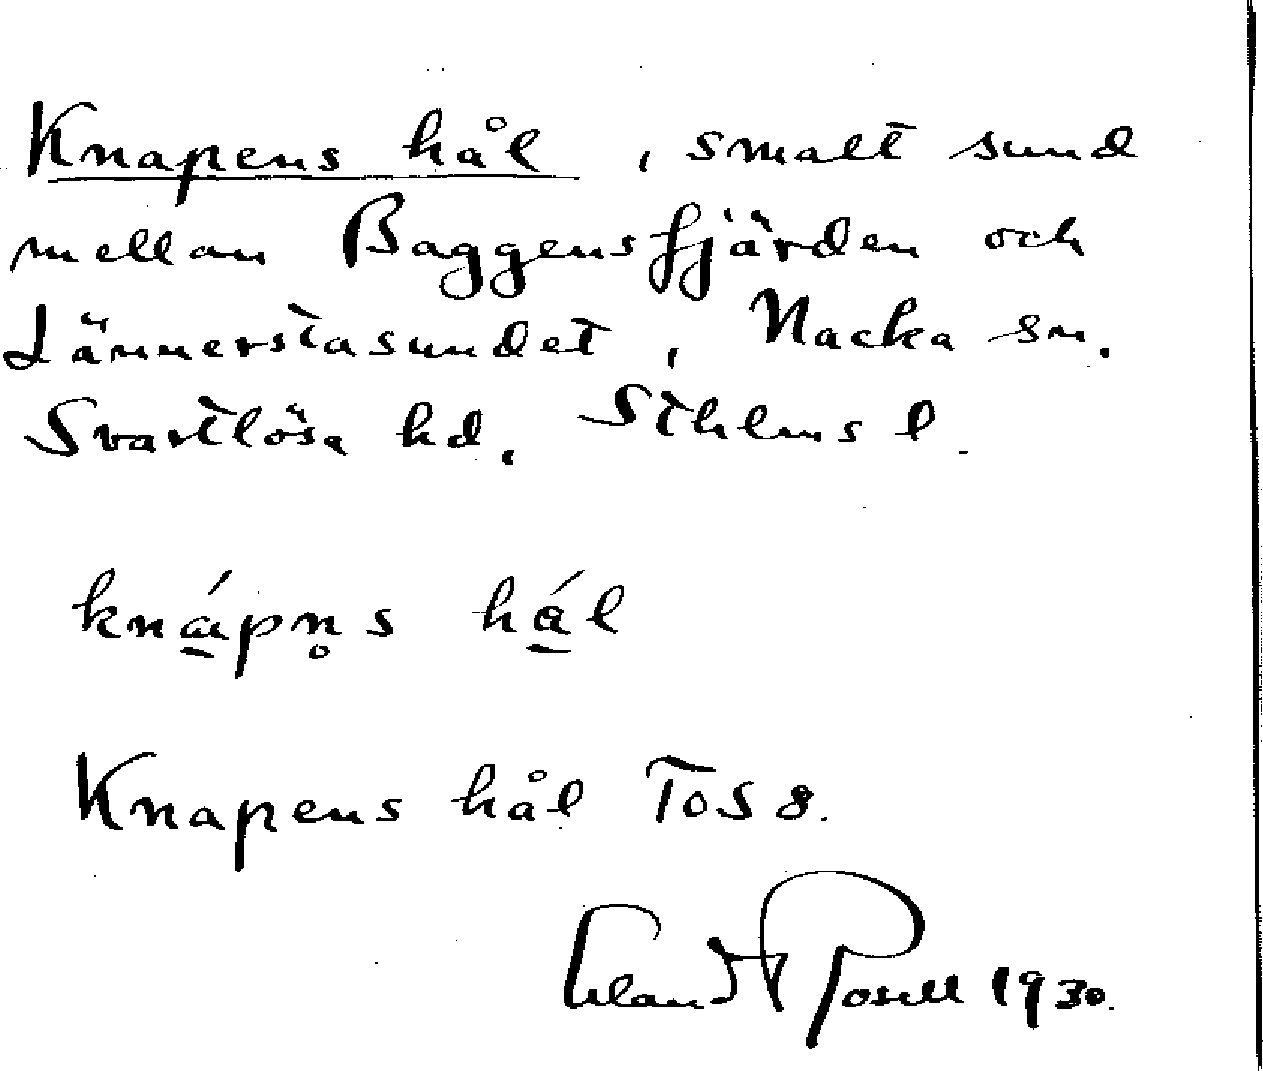 Knapens hål, smalt sund
mellan Baggensfjärden och
Lännerstasundet, Nacka sn.
Svartlösa hd. Sthlms l.
knápn̥s hǻl
Knapens hål ToS 8.
Rosell 1930.